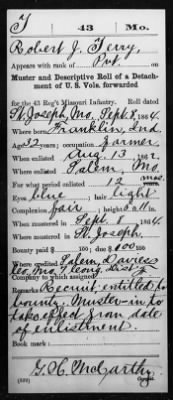 T 43 Mo.
Robert J. Terry,
Appears with rank of Pvt. on
Muster and Descriptive Roll of a Detachment of U. S. Vols. forwarded
for the 43 Reg't Missouri Infantry. Roll dated
St. Joseph, Mo, Sept. 8, 1864.
Where born Franklin, Ind
Age 32 years; occupation Farmer
When enlisted Aug. 13, 1864.
Where enlisted Salem, Mo
For what period enlisted 12 mos.
Eyes blue; hair light
Complexion fair; height
When mustered in Sept. 8, 1864.
Where mustered in St. Joseph.
Bounty paid $ 100; due $ 100
Where credited Salem, Daviess
Co, Mo, Cong. Dist 7
Company to which assigned
Remarks: Recruit, entitled to
bounty. Muster-in to
take effect from date
of enlistment.
Book mark:
G. H. McCarthy
(339) Copyist.